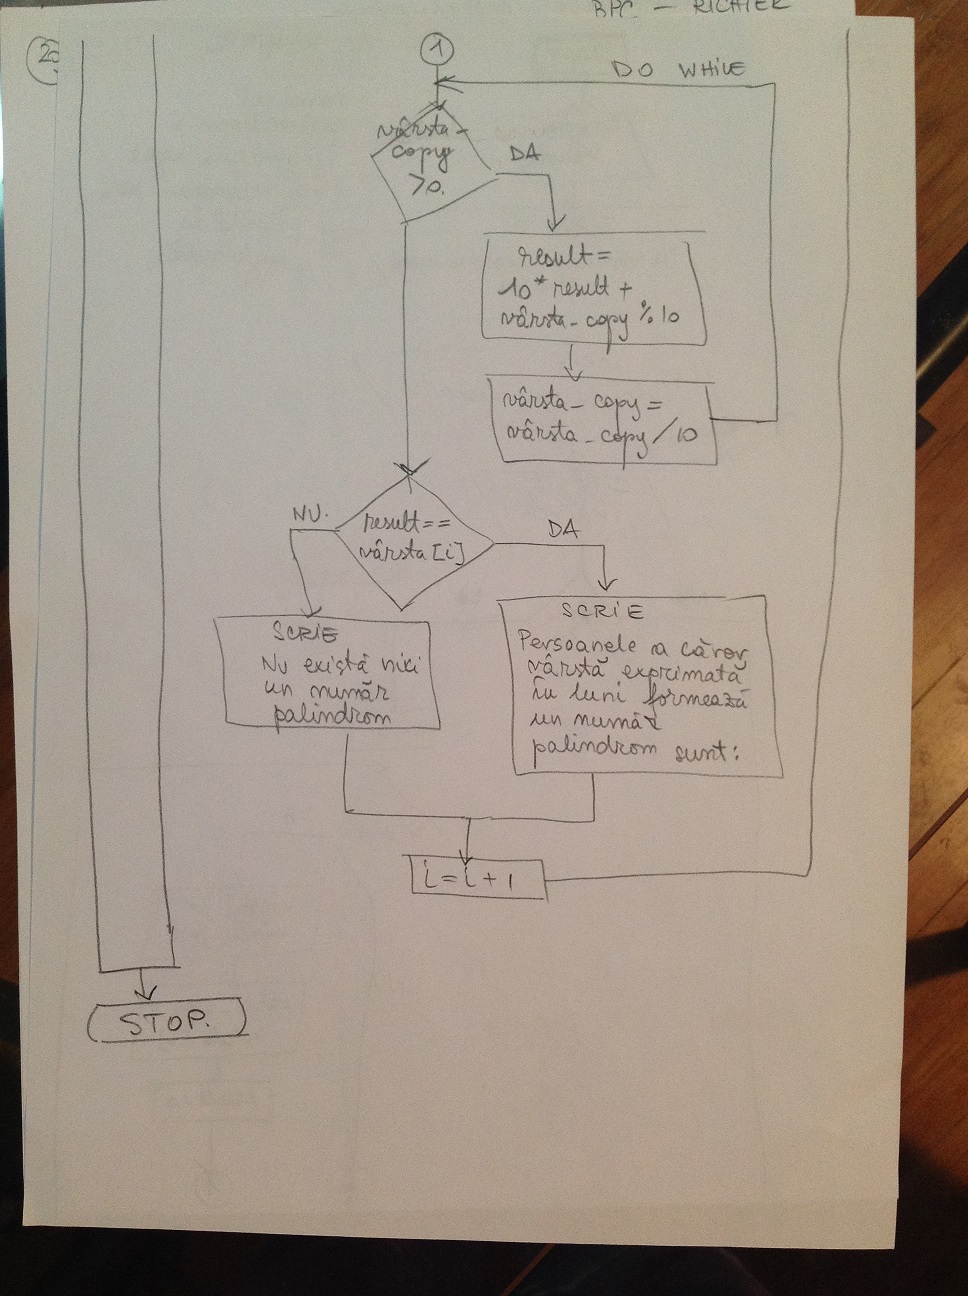 BPC - RICHTER
2
1
DO WHILE
vârsta-
copy
>0.
DA
result=
10* result +
vârsta-copy % 10
vârsta- copy =
vârsta-copy / 10
NU.
result==
vârsta [i]
DA
SCRIE
Nu există nici
un număr
palindrom
SCRIE
Persoanele a căror
vârstă exprimată
în luni formează
un număr
palindrom sunt:
i=i+1
STOP.